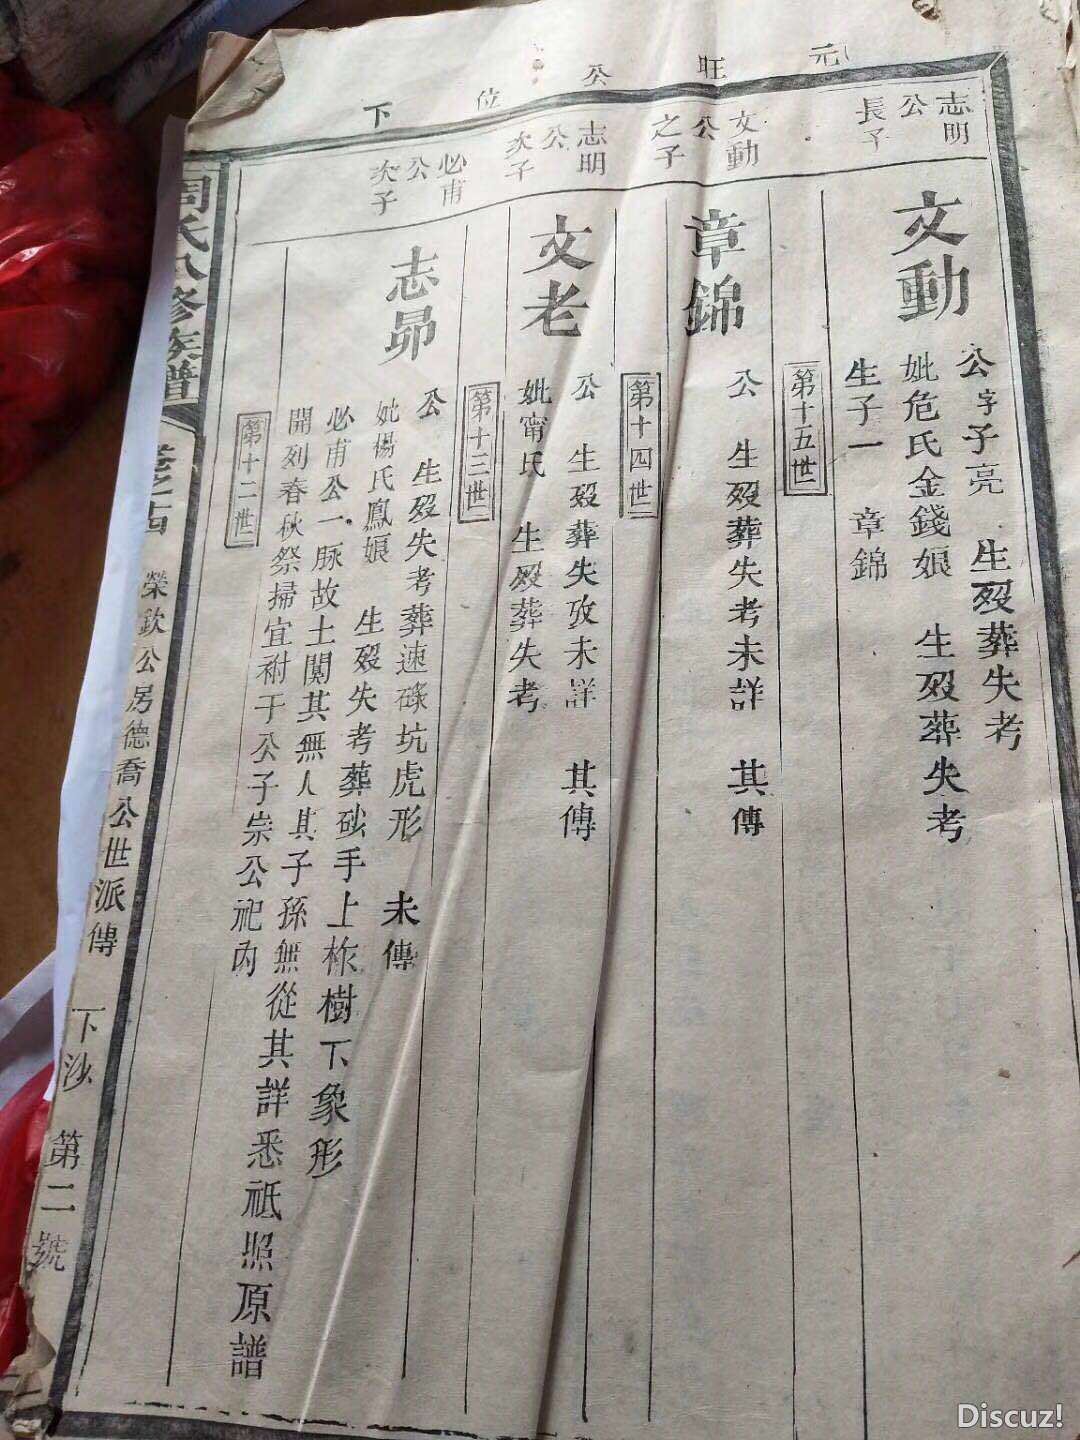 元旺公位下
志明公長子
文動
公字子亮 生歿葬失考
妣危氏金錢娘 生歿葬失考
生子一 章錦
第十五世
文動公之子
章錦
公 生歿葬失考未詳 其傳
第十四世
志明公次子
文老
公 生歿葬失攷未詳 其傳
妣甯氏 生歿葬失考
第十三世
必甫公次子
志昴
公 生歿失考葬速磜坑虎形 未傳
妣楊氏鳳娘 生歿失考葬砂手上柞樹下象形
必甫公一脉故土闃其無人其子孫無從其詳悉祗照原譜
開列春秋祭掃宜祔于公子崇公祀內
第十二世
周氏八修族譜
榮欽公房德喬公世派傳
下沙 第二號
Discuz!